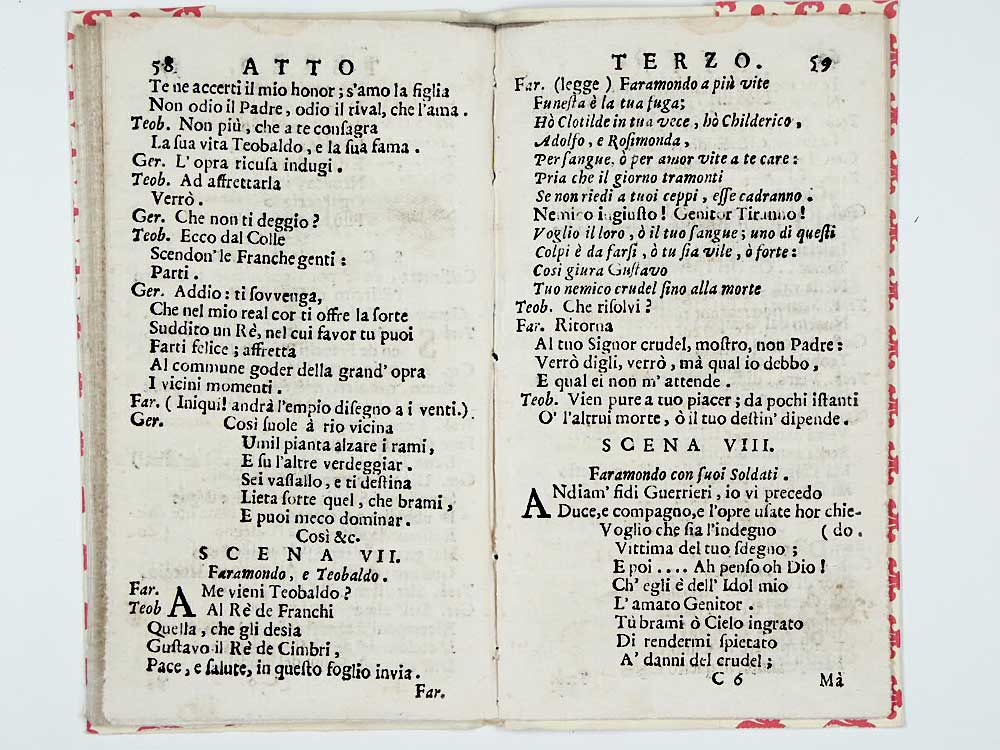 58 ATTO
Te ne accerti il mio honor; s'amo la figlia
Non odio il Padre, odio il rival, che l'ama.
Teob. Non più, che a te consagra
La sua vita Teobaldo, e la sua fama.
Ger. L'opra ricusa indugi.
Teob. Ad affrettarla
Verrò.
Ger. Che non ti deggio?
Teob. Ecco dal Colle
Scendon' le Franche genti:
Parti.
Ger. Addio: ti sovvenga,
Che nel mio real cor ti offre la sorte
Suddito un Rè, nel cui favor tu puoi
Farti felice; affretta
Al commune goder della grand' opra
I vicini momenti.
Far. (Iniqui! andrà l'empio disegno a i venti.)
Ger. Così suole à rio vicina
Umil pianta alzare i rami,
E su l'altre verdeggiar.
Sei vassallo, e ti destina
Lieta sorte quel, che brami,
E puoi meco dominar.
Così &c.
SCENA VII.
Faramondo, e Teobaldo.
Far. A Me vieni Teobaldo?
Teob Al Rè de Franchi
Quella, che gli desia
Gustavo il Rè de Cimbri,
Pace, e salute, in questo foglio invia.
Far.
TERZO. 59
Far. (legge) Faramondo a più vite
Funesta è la tua fuga;
Hò Clotilde in tua vece, hò Childerico,
Adolfo, e Rosimonda,
Per sangue, ò per amor vite a te care:
Pria che il giorno tramonti
Se non riedi a tuoi ceppi, esse cadranno.
Nemico ingiusto! Genitor Tiranno!
Voglio il loro, ò il tuo sangue; uno di questi
Colpi è da farsi, ò tu sia vile, ò forte:
Così giura Gustavo
Tuo nemico crudel sino alla morte
Teob. Che risolvi?
Far. Ritorna
Al tuo Signor crudel, mostro, non Padre:
Verrò digli, verrò, mà qual io debbo,
E qual ei non m' attende.
Teob. Vien pure a tuo piacer; da pochi istanti
O' l'altrui morte, ò il tuo destin' dipende.
SCENA VIII.
Faramondo con suoi Soldati.
ANdiam' fidi Guerrieri, io vi precedo
Duce, e compagno, e l'opre usate hor chie-
Voglio che sia l'indegno (do.
Vittima del tuo sdegno;
E poi .... Ah penso oh Dio!
Ch' egli è dell' Idol mio
L'amato Genitor.
Tù brami ò Cielo ingrato
Di rendermi spietato
A' danni del crudel;
C 6 Mà